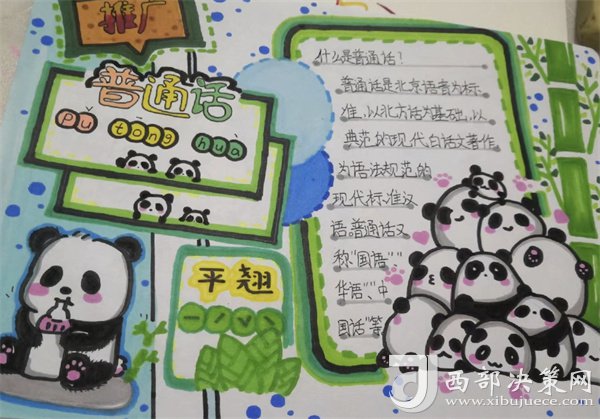 推广
普通话
pǔ tōng huà
平翘
什么是普通话？
普通话是北京语音为标
准,以北方话为基础,以
典范的现代白话文著作
为语法规范的
现代标准汉
语.普通话又
称“国语”、
华语”、中
国话”等
西部决策网
www.xibujuece.com